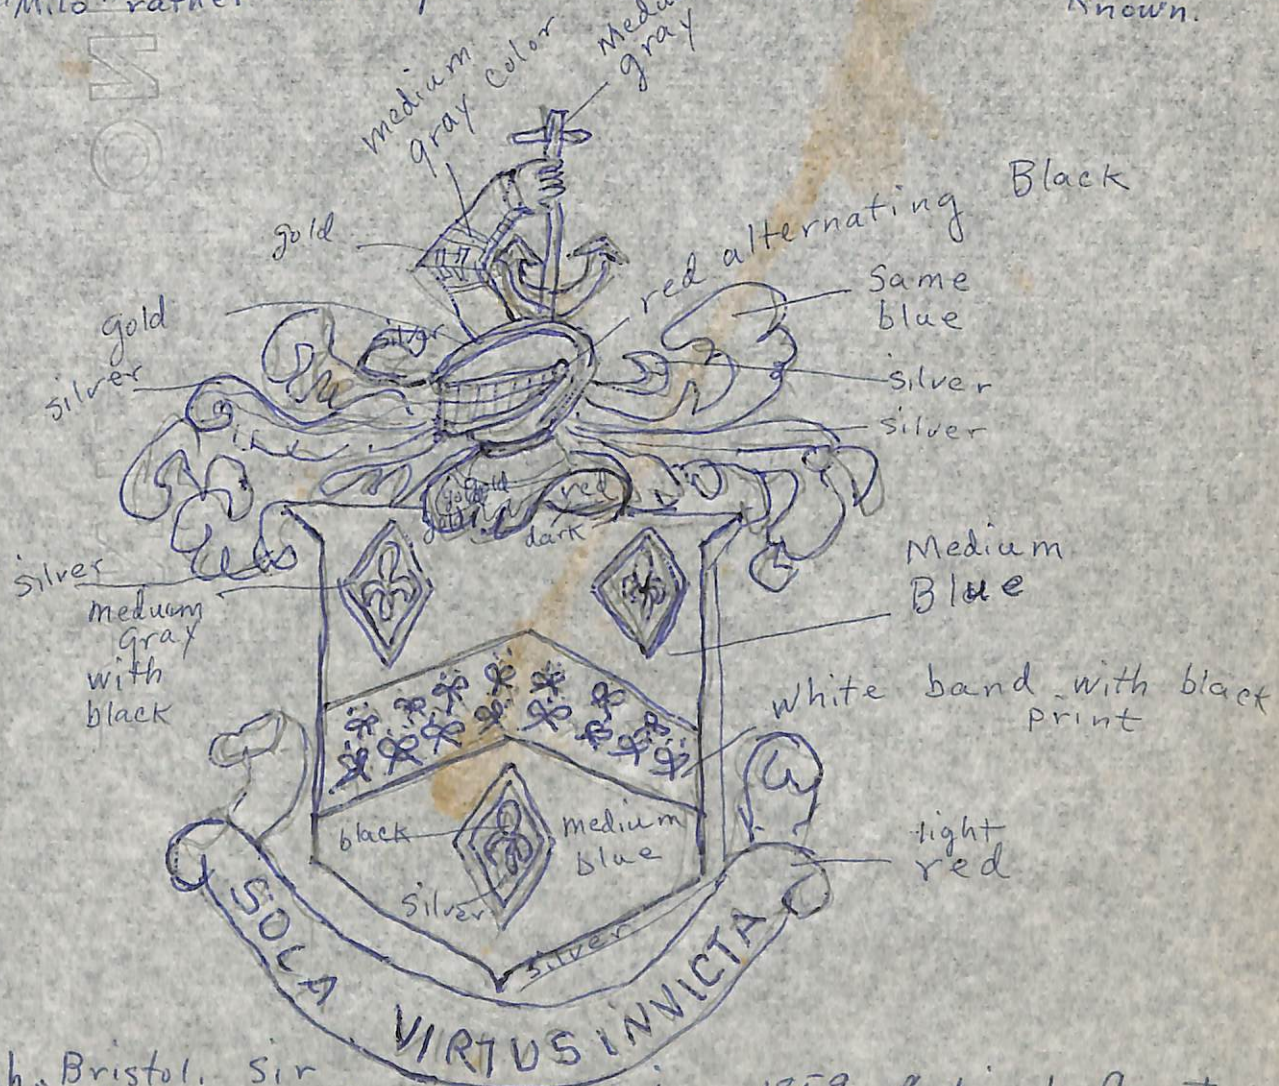 Milo rather
Known.
medium
gray color
gray
Black
gold
red alternating
Same
blue
gold
silver
silver
silver
silver
gold
red
dark
silver
meduum
gray
with
black
Medium
Blue
white band with black
print
black
medium
blue
light
red
silver
silver
SOLA VIRTUS INVICTA
h. Bristol, Sir